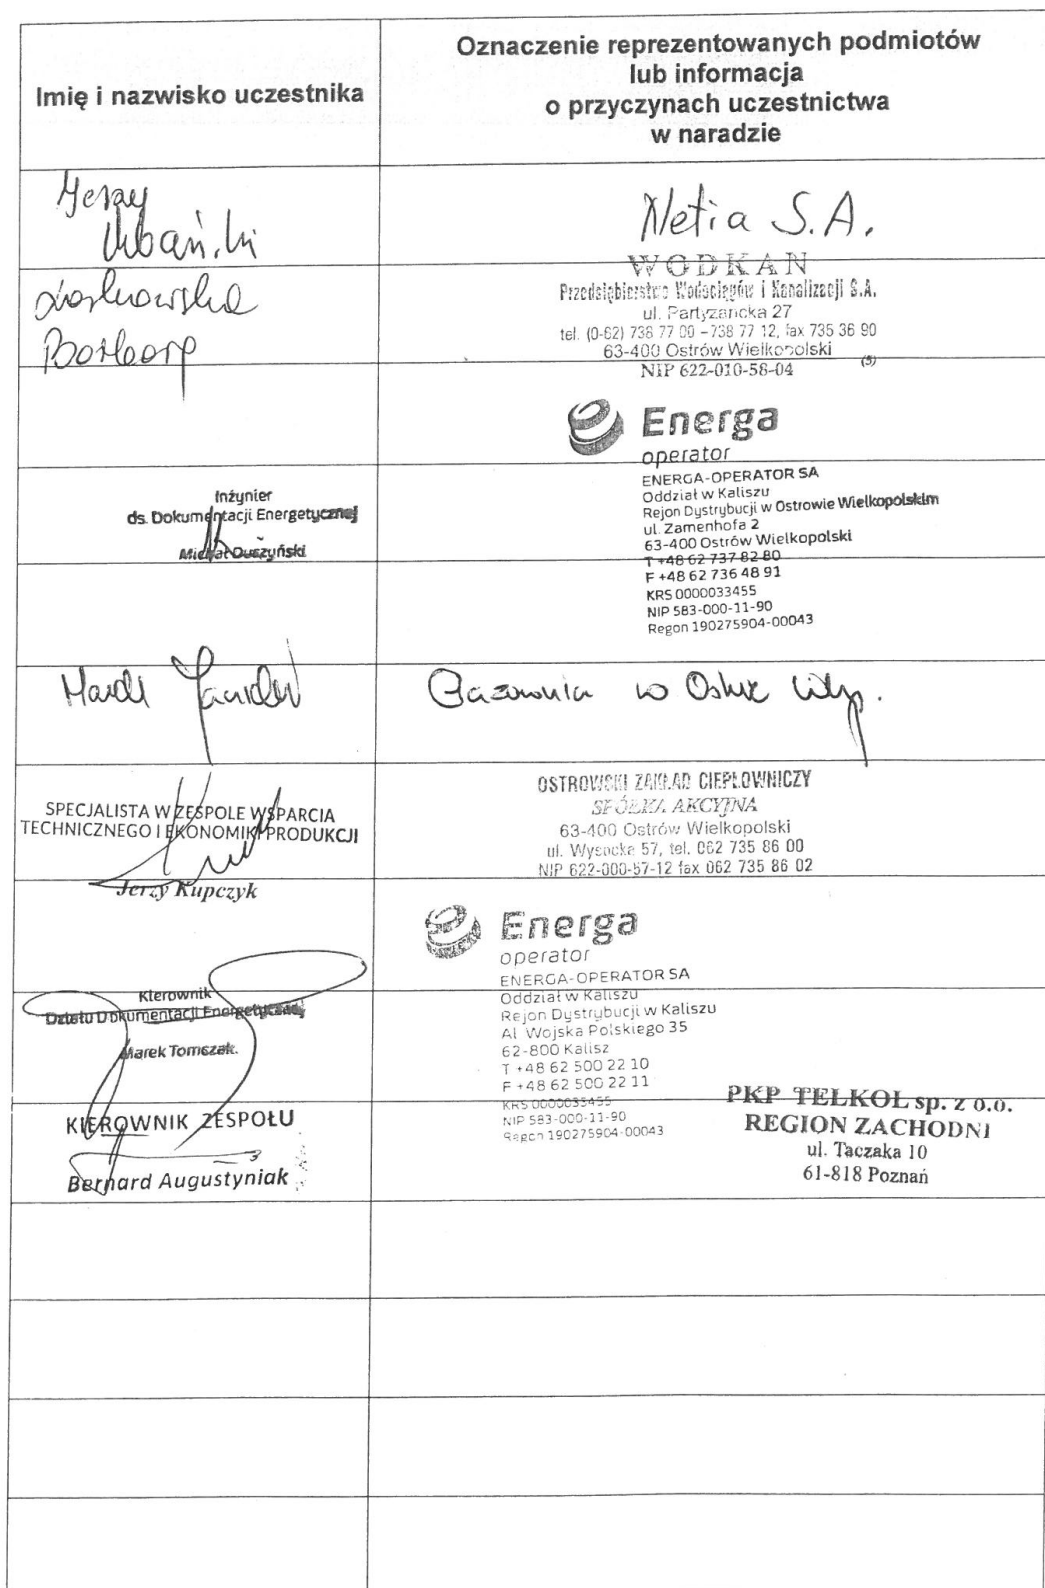 Imię i nazwisko uczestnika
Oznaczenie reprezentowanych podmiotów
lub informacja
o przyczynach uczestnictwa
w naradzie
Jerzy
Urbański
Netia S.A.
Barbara
WODKAN
Przedsiębiorstwo Wodociągów i Kanalizacji S.A.
ul. Partyzancka 27
tel. (0-62) 738 77 00 – 738 77 12, fax 735 36 90
63-400 Ostrów Wielkopolski
NIP 622-010-58-04
(5)
Inżynier
ds. Dokumentacji Energetycznej
Michał Duszyński
Energa
operator
ENERGA-OPERATOR SA
Oddział w Kaliszu
Rejon Dystrybucji w Ostrowie Wielkopolskim
ul. Zamenhofa 2
63-400 Ostrów Wielkopolski
T +48 62 737 82 80
F +48 62 736 48 91
KRS 0000033455
NIP 583-000-11-90
Regon 190275904-00043
Marek
Gazownia w Ostr. Wlkp.
SPECJALISTA W ZESPOLE WSPARCIA
TECHNICZNEGO I EKONOMIKI PRODUKCJI
Jerzy Kupczyk
OSTROWSKI ZAKŁAD CIEPŁOWNICZY
SPÓŁKA AKCYJNA
63-400 Ostrów Wielkopolski
ul. Wysocka 57, tel. 062 735 86 00
NIP 622-000-57-12 fax 062 735 86 02
Kierownik
Działu Dokumentacji Energetycznej
Marek Tomczak.
Energa
operator
ENERGA-OPERATOR SA
Oddział w Kaliszu
Rejon Dystrybucji w Kaliszu
Al. Wojska Polskiego 35
62-800 Kalisz
T +48 62 500 22 10
F +48 62 500 22 11
KRS 0000033455
NIP 583-000-11-90
Regon 190275904-00043
KIEROWNIK ZESPOŁU
Bernard Augustyniak
PKP TELKOL sp. z o.o.
REGION ZACHODNI
ul. Taczaka 10
61-818 Poznań